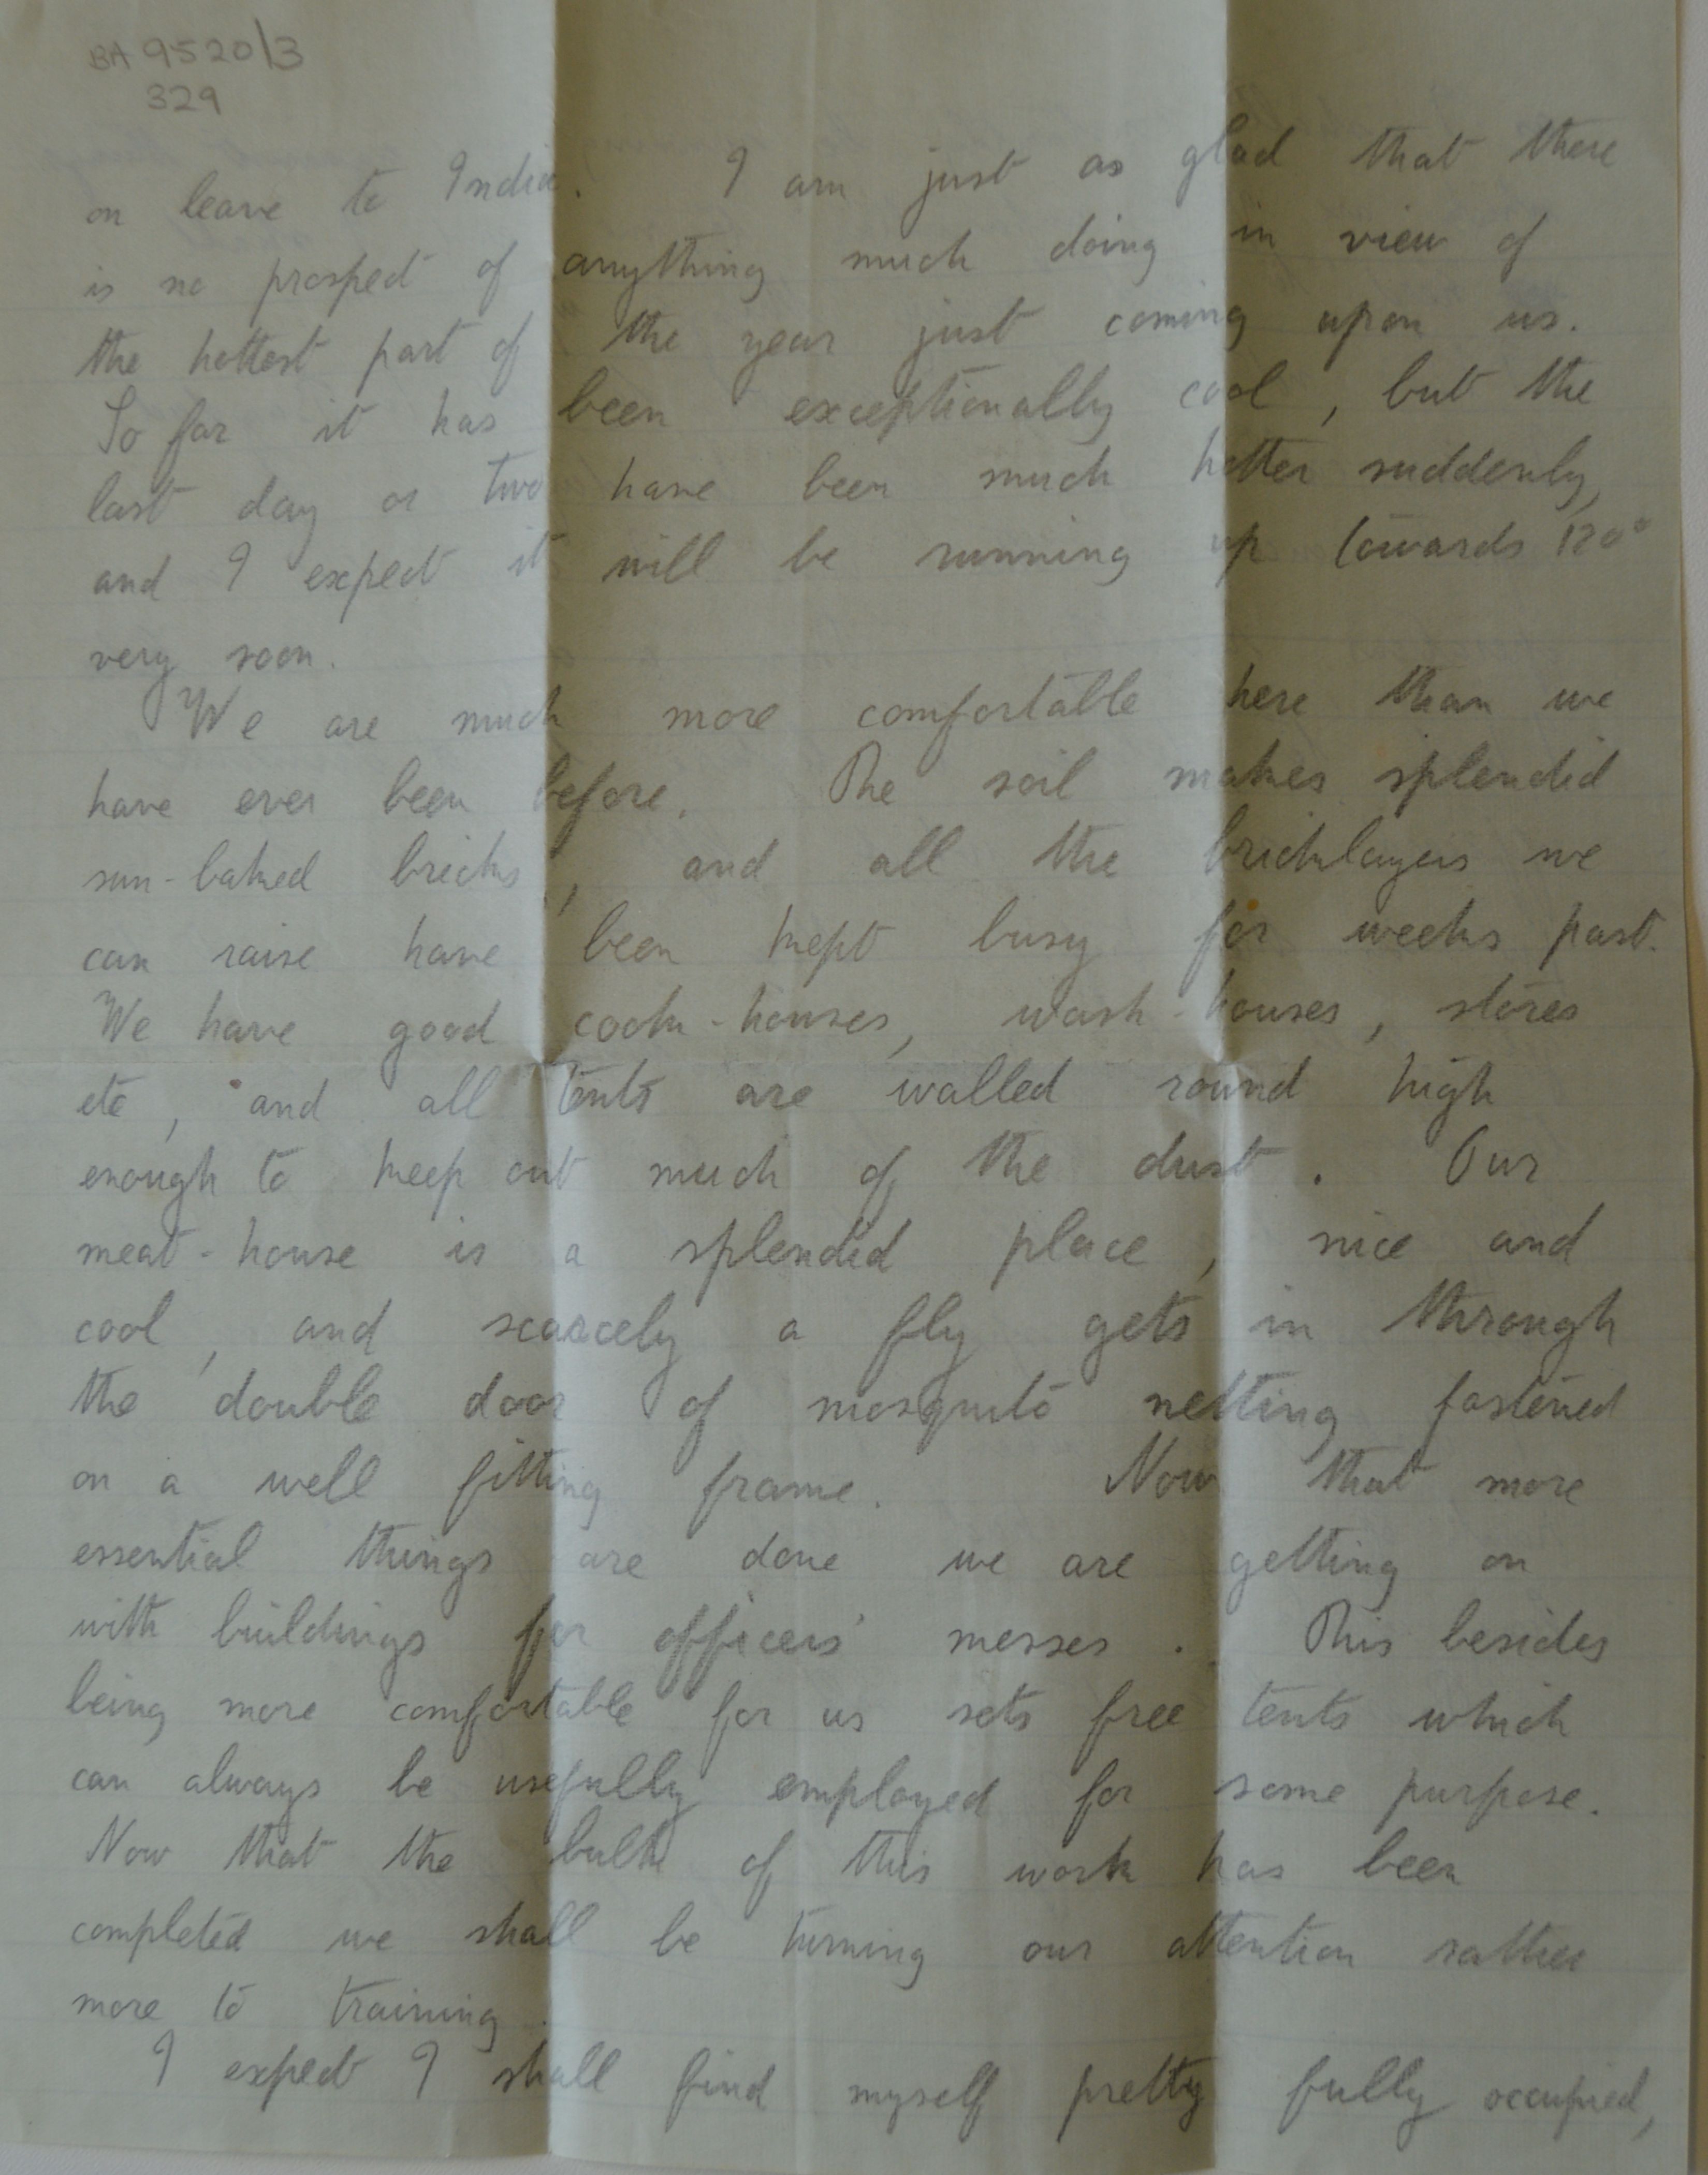 BA 9520/3
329
on leave to India. I am just as glad that there
is no prospect of anything much doing in view of
the hottest part of the year just coming upon us.
So far it has been exceptionally cool, but the
last day or two have been much hotter suddenly,
and I expect it will be running up towards 120°
very soon.
We are much more comfortable here than we
have ever been before. The soil makes splendid
sun-baked bricks, and all the bricklayers we
can raise have been kept busy for weeks past.
We have good cook-houses, wash-houses, stores
etc, and all tents are walled round high
enough to keep out much of the dust. Our
meat-house is a splendid place, nice and
cool, and scarcely a fly gets in through
the double door of mosquito netting fastened
on a well fitting frame. Now that more
essential things are done we are getting on
with buildings for officers' messes. This besides
being more comfortable for us sets free tents which
can always be usefully employed for some purpose.
Now that the bulk of this work has been
completed we shall be turning our attention rather
more to training.
I expect I shall find myself pretty fully occupied,